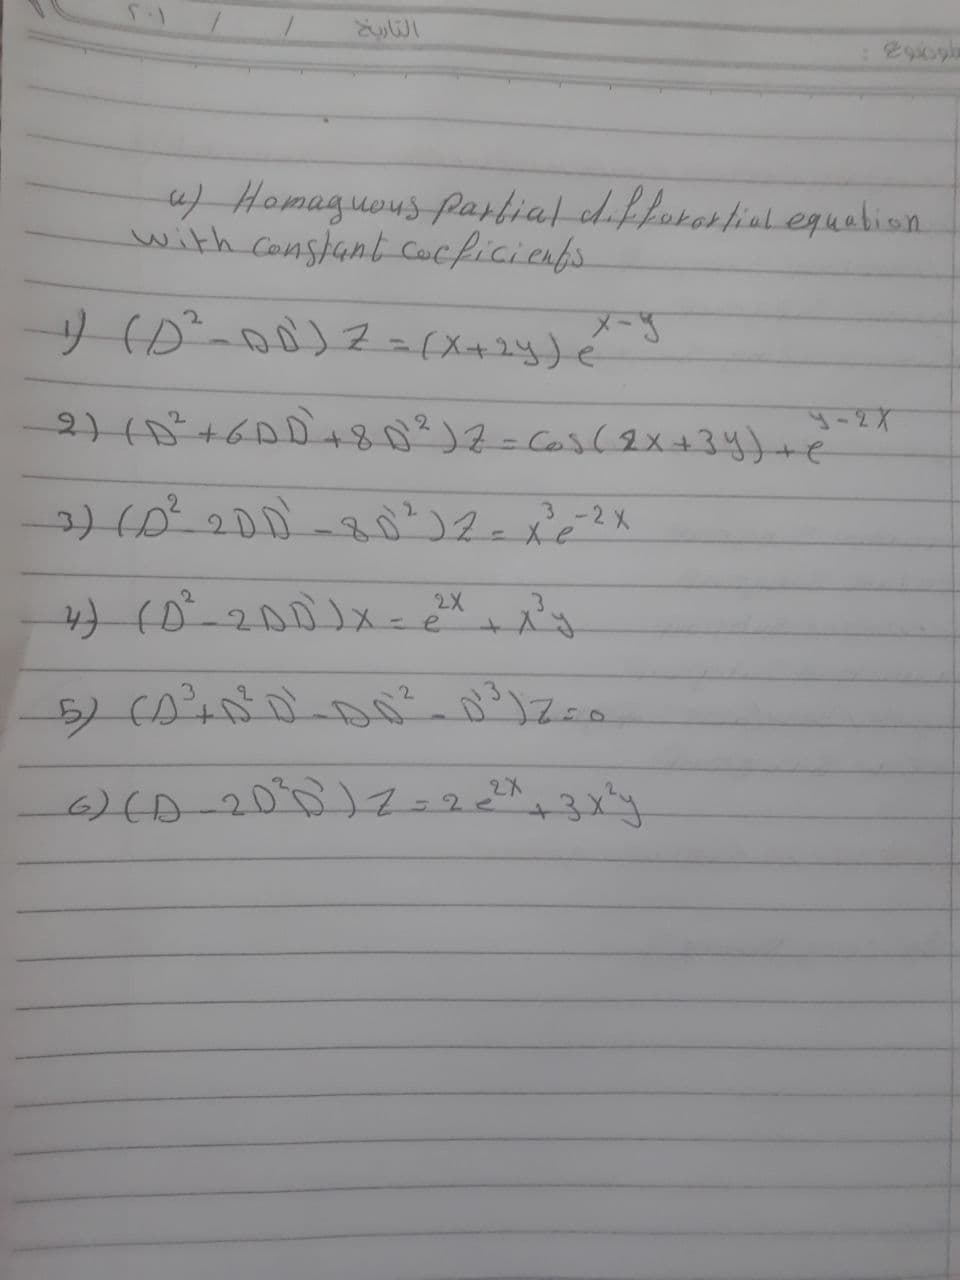 ٢٠١ / / التاريخ
الموضوع :
a) Homaguous partial differortial equation
with constant coefficients
1) (D² - DD') Z = (x+2y) e^{x-y}
2) (D² + 6DD' + 8D'²) Z = Cos(2x+3y) + e^{y-2x}
3) (D² - 2DD' - 8D'²) Z = x³e^{-2x}
4) (D² - 2DD') x = e^{2x} + x³y
5) (D³ + D²D' - DD'² - D'³) Z = 0
6) (D - 2D²D') Z = 2e^{2x} + 3x²y